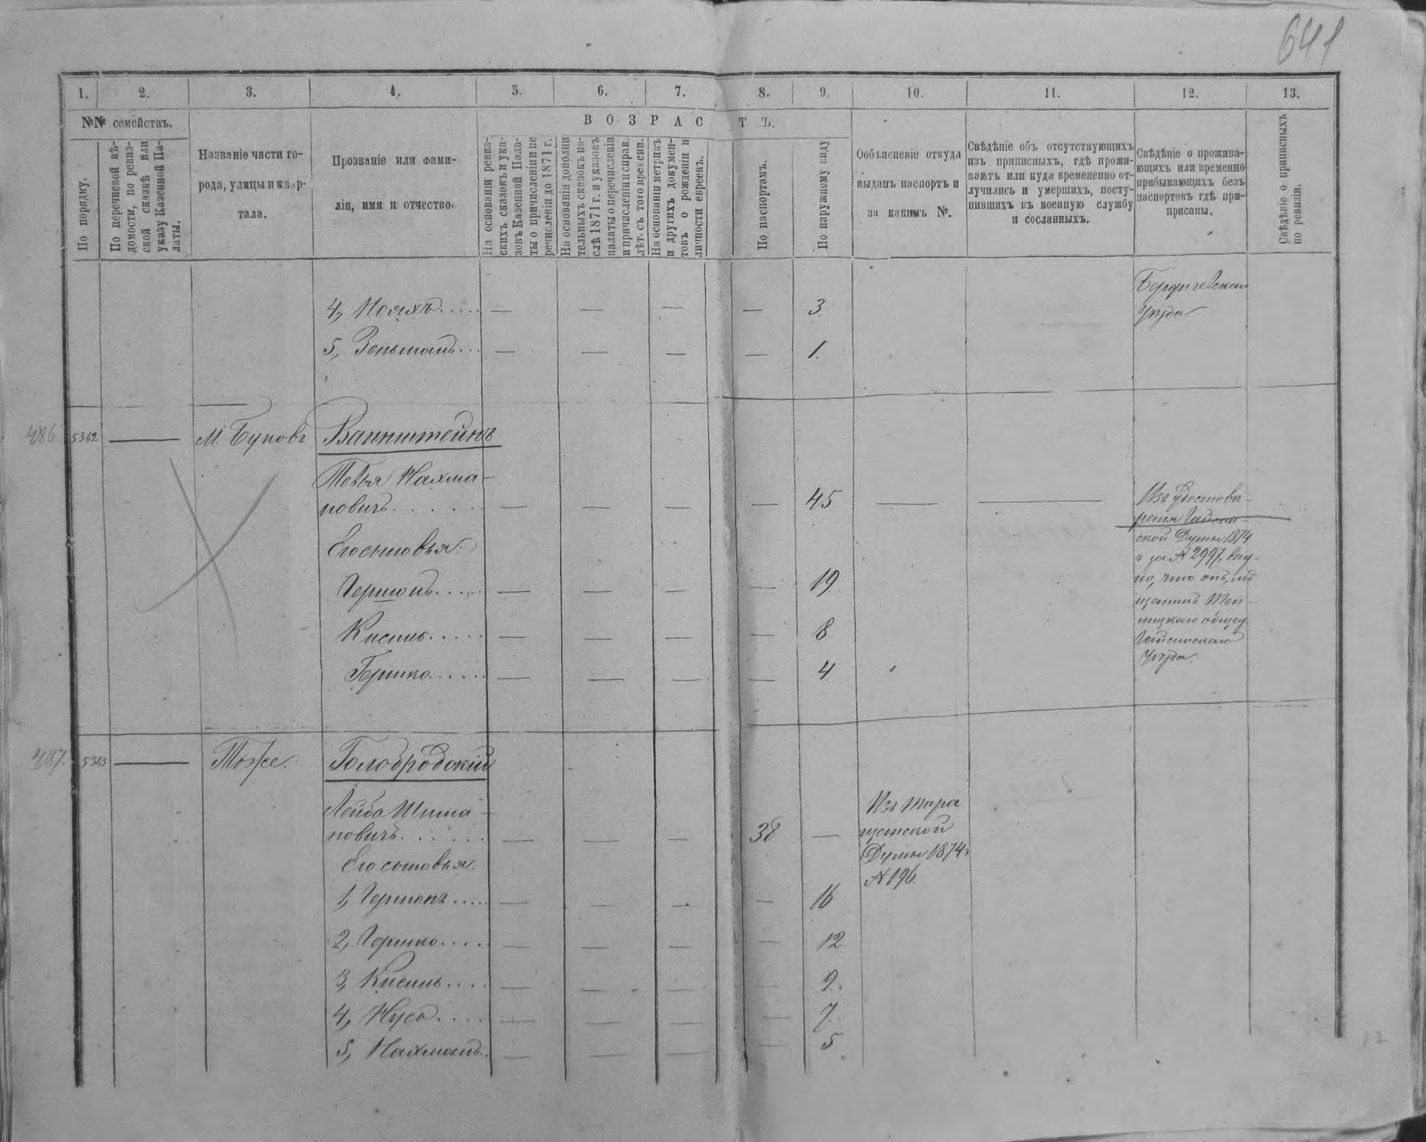 641
1. 2. 3. 4. 5. 6. 7. 8. 9. 10. 11. 12. 13.
№№ семействъ.
ВОЗРАСТЪ.
По порядку.
По перечневой вѣ-
домости, по ревиз-
ской сказкѣ или
указу Казенной Па-
латы.
Названіе части го-
рода, улицы и квар-
тала.
Прозваніе или фами-
лія, имя и отчество.
На основаніи ревиз-
скихъ сказокъ и ука-
зовъ Казенной Пала-
ты о причисленіи и пе
речисленіи до 1871 г.
На основаніи дополни
тельныхъ сказокъ по-
слѣ 1871 г. и указовъ
палаты о перечисленіи
и причисленіи и справ.
лѣт. съ того времени.
На основаніи метрикъ
и другихъ докумен-
товъ о рожденіи и
личности евреевъ.
По паспортамъ.
По наружному виду
Ообъясненіе откуда
выданъ паспортъ и
за какимъ №.
Свѣдѣніе объ отсутствующихъ
изъ приписныхъ, гдѣ прожи-
ваютъ или куда временно от-
лучились и умершихъ, посту-
пившихъ въ военную службу
и сосланныхъ.
Свѣдѣніе о прожива-
ющихъ или временно
прибывающихъ безъ
паспортовъ гдѣ при-
писаны.
Свѣдѣніе о приписныхъ
по ревизіи.
Бердичевскаго
уѣзда
4, Нояхъ..... — — — — 3
5, Зельманъ... — — — — 1.
486 5362 — М. Буковъ Ваинштейнъ
Тевья Нахма-
новичъ...... — — — — 45 — —
Его сыновья:
Гершонъ..... — — — — 19
Кисиль..... — — — — 8
Бринко..... — — — — 4
Изъ удостовѣ-
ренія Гайсин-
ской Думы 1874
г за № 2997 вид-
но, что онъ, мѣ
щанинъ
общес
Гайсинскаго
уѣзда
487. 5363 — Тоже. Голобродскій
Лейба Шима-
новичъ...... — — — 38 —
Изъ Тара
щанской
Думы 1874 г
№ 196.
Его сыновья.
1, Гершонъ..... — — — — 16
2, Гершко..... — — — — 12
3, Кисиль.... — — — — 9.
4, Нусъ.... — — — — 7.
5, Нахманъ.. — — — — 5.
12